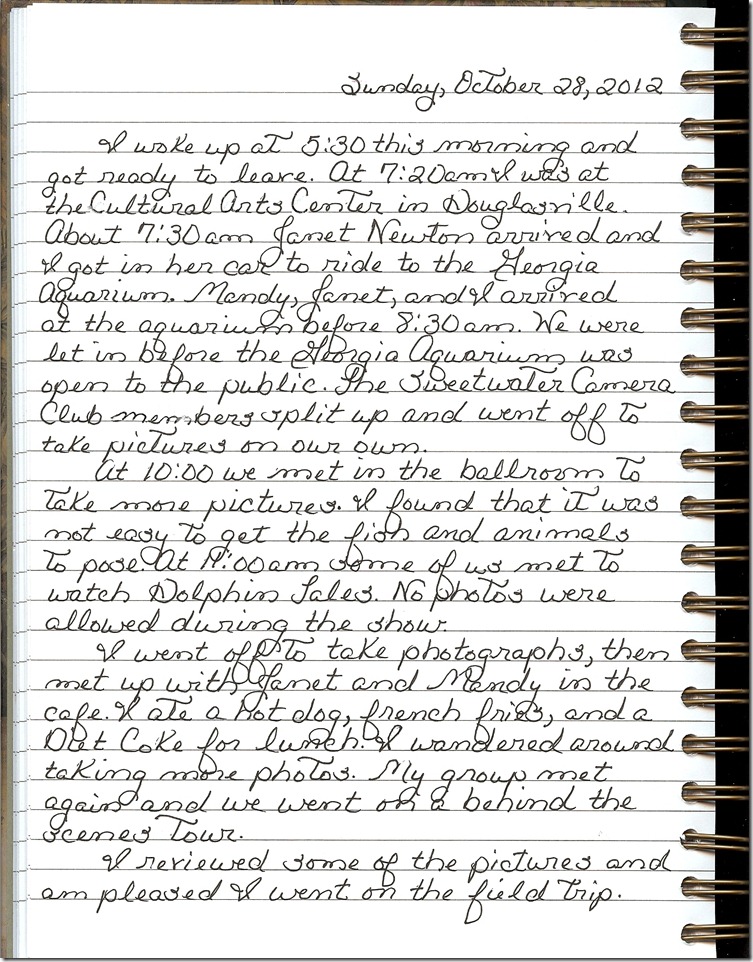 Sunday, October 28, 2012
I woke up at 5:30 this morning and
got ready to leave. At 7:20am I was at
the Cultural Arts Center in Douglasville.
About 7:30am Janet Newton arrived and
I got in her car to ride to the Georgia
Aquarium. Mandy, Janet, and I arrived
at the aquarium before 8:30am. We were
let in before the Georgia Aquarium was
open to the public. The Sweetwater Camera
Club members split up and went off to
take pictures on our own.
At 10:00 we met in the ballroom to
take more pictures. I found that it was
not easy to get the fish and animals
to pose. At 11:00am some of us met to
watch Dolphin Tales. No photos were
allowed during the show.
I went off to take photographs, then
met up with Janet and Mandy in the
cafe. I ate a hot dog, french fries, and a
Diet Coke for lunch. I wandered around
taking more photos. My group met
again and we went on a behind the
scenes tour.
I reviewed some of the pictures and
am pleased I went on the field trip.